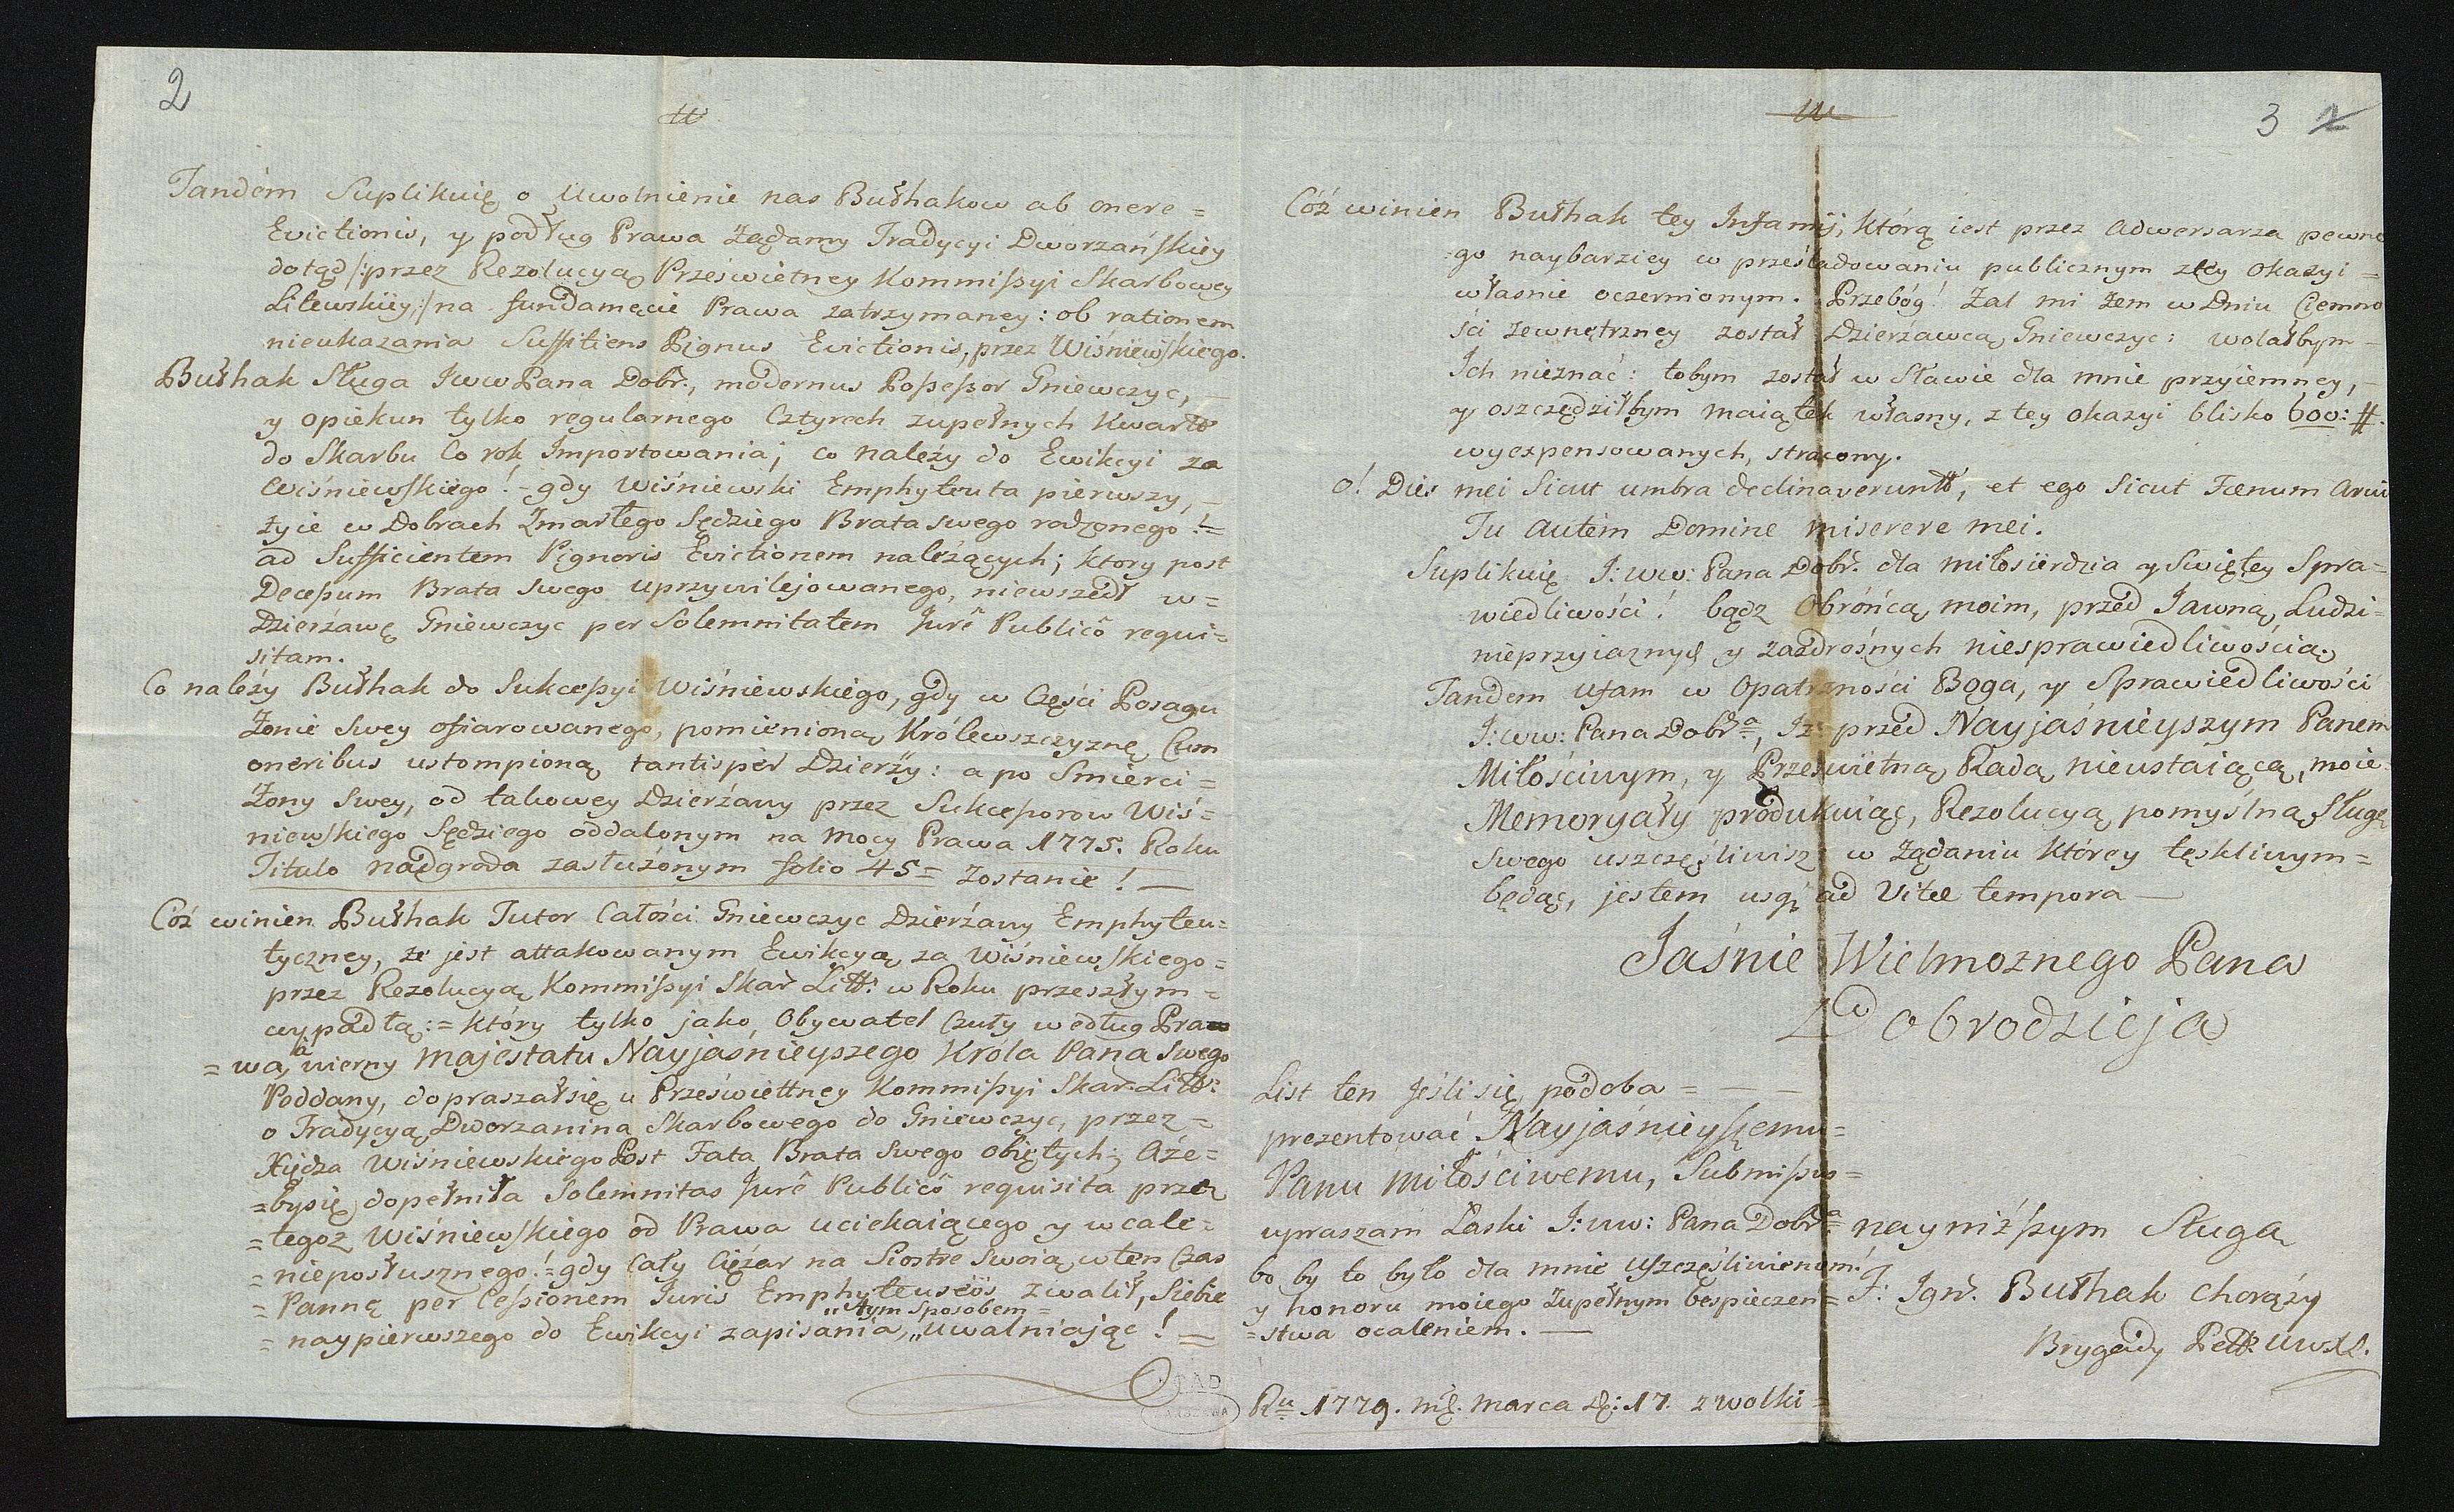 2
II
Tandem Suplikuię o Uwolnienie nas Bułhakow ab onere=
Evictionis, y podług Prawa Żądamy Tradycyi Dworzańskiey
dotąd /:przez Rezolucyą Prześwietney Kommissyi Skarbowey
Litewskiey,:/ na fundamęcie Prawa zatrzymaney: ob rationem
nieukazania Suffitiens Pignus Evictionis, przez Wiśniewskiego.
Bułhak Sługa Jww Pana Dobr., modernus Possessor Gniewczyc, –
y opiekun tylko regularnego Cztyrech zupełnych Kwartt
do Skarbu Co rok Importowania; co należy do Ewikcyi za
Wiśniewskiego! – gdy Wiśniewski Emphyteuta pierwszy, –
żyie w Dobrach Zmarłego Sędziego Brata swego radzonego !=
ad Sufficientem Pignoris Evictionem należących; ktory post
Decessum Brata swego uprzywilejowanego, niewszedł w=
Dzierżawę Gniewczyc per Solemnitatem Jurê Publicô requi=
sitam.
Co należy Bułhak do Sukcessyi Wiśniewskiego, gdy w Części Posagu
Żonie swey ofiarowanego, pomienioną Królewszczyznę, Cum
oneribus ustompioną tantisper Dzierży: a po Smierci=
Żony Swey, od takowey Dzierżawy przez Sukcessorow Wiś=
niewskiego Sędziego oddalonym na mocy Prawa 1775. Roku
Titulo nadgroda zasłużonym folio 45= Zostanie! —
Coż winien Bułhak Tutor Całości Gniewczyc Dzierżawy Emphyteu=
tyczney, że jest attakowanym Ewikcyą za Wiśniewskiego=
przez Rezolucyą Kommissyi Skar Litt: w Roku przeszłym=
wypadłą:= który tylko jako Obywatel Czuły według Pra
=wa, à wierny majestatu Nayjaśnieyszego Króla Pana Swego
Poddany, dopraszałsię u Przeświettney Kommissyi Skar Litt:
o Tradycyą Dworzanina Skarbowego do Gniewczyc, przez=
Xiędza Wiśniewskiego Post Fata Brata Swego obiętych; Aże=
=bysię dopełniła Solemnitas Jurê Publicô requisita przez
=tegoż Wiśniewskiego od Prawa uciekaiącego y wcale=
=nieposłusznego!=gdy Cały Ciężar na Siostre Swoią w ten Czas
=Pannę per Cessionem Juris Emphyteuseôs zwalił, Siebie
=naypierwszego do Ewikcyi zapisania, „tym sposobem= „uwalniając! =
3
III
Cóż winien Bułhak tey Infamij, którą iest przez Adwersarza pewne
=go naybarziey w prześladowaniu publicznym z tey okazyi=
własnie oczernionym. Przebóg! Zal mi żem w Dniu Ciemno
ści zewnętrzney został Dzierżawcą Gniewczyc: wolałbym –
Ich nieznać: tobym został w Sławie dla mnie przyiemney, –
y oszczędziłbym maiątek własny, z tey okazyi blisko 600: #.
wyexpensowanych, stracony.
O! Dies mei Sicut umbra declinaverunt, et ego Sicut Fœnum Arui
Tu autem Domine miserere mei.
Suplikuię J: ww: Pana Dobr. dla miłosierdzia y Swiętey Spra=
wiedliwości! bądz Obrońcą moim, przed Jawną Ludzi=
nieprzyiaznych y zazdrośnych niesprawiedliwością.
Tandem Ufam w Opatrzności Boga, y Sprawiedliwości
J: ww: Pana Dobra, Iż przed Nayjaśnieyszym Panem
Miłościwym, y Prześwietną Radą nieustaiącą, moie
Memoryały produkuiąc, Rezolucyą pomyślną Sługę
Swego uszczęśliwisz w żądaniu którey tęskliwym=
będąc, jestem usq ad Vitæ tempora —
Jaśnie Wielmoznego Pana
Dobrodzieja
List ten Jeślisię podoba= — —
prezentować Nayjaśnieyszemu=
Panu miłościwemu, Submisso=
upraszam Łaski J: ww: Pana Dobra=
bo by to było dla mnie Uszczęśliwieniem:
y honoru moiego zupełnym bespieczeń=
=stwa ocaleniem. —
nayniższym Sługą
J: Ign. Bułhak Chorąży
Brygady Pett. uwxl.
Ru 1779. mẽ. Marca D: 17. z wolki=